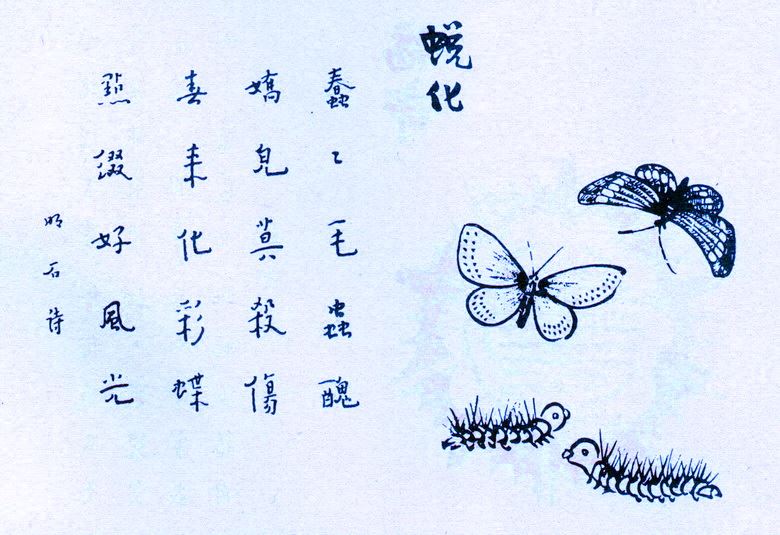 蜕化
蠢々毛蟲醜
嬌兒莫殺傷
春來化彩蝶
點綴好風光
明石詩